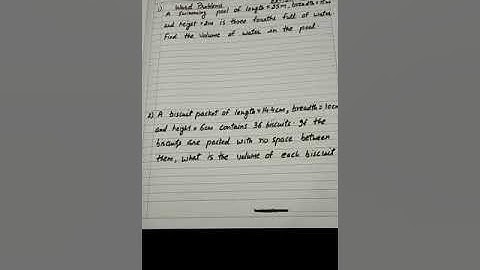 1) Word Problems
A swimming pool of length = 25m, breadth = 15m
and height = 2m is three fourths full of water.
Find the volume of water in the pool.
2) A biscuit packet of length = 14.4cm, breadth = 10cm
and height = 6cm contains 36 biscuits. If the
biscuits are packed with no space between
them, what is the volume of each biscuit